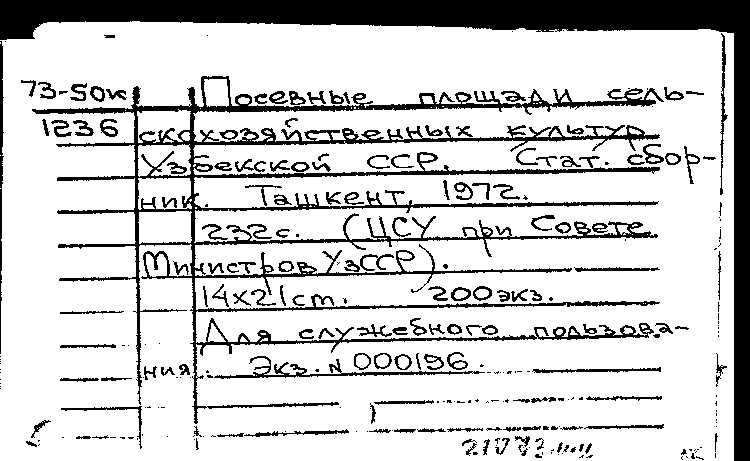 73-50к Посевные площади сель-
1236 скохозяйственных культур
Узбекской ССР. Стат. сбор-
ник. Ташкент, 1972.
232 с. (ЦСУ при Совете
Министров УзССР).
14x21cm. 200 экз.
Для служебного пользова-
ния. Экз. N 000196.